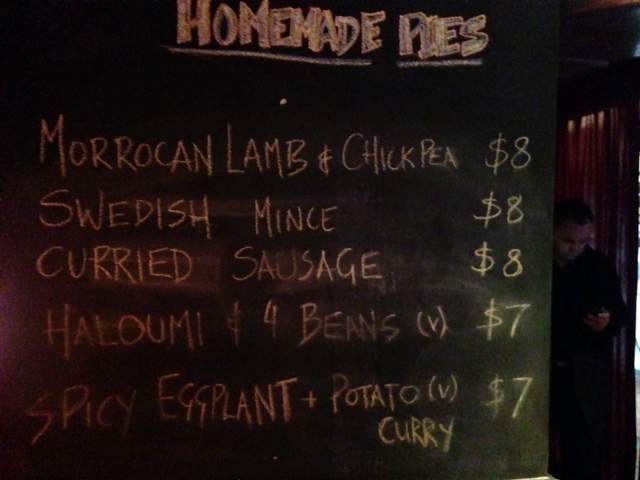 HOMEMADE PIES
MORROCAN LAMB & CHICKPEA $8
SWEDISH MINCE $8
CURRIED SAUSAGE $8
HALOUMI & 4 BEANS (V) $7
SPICY EGGPLANT + POTATO (V) $7
CURRY